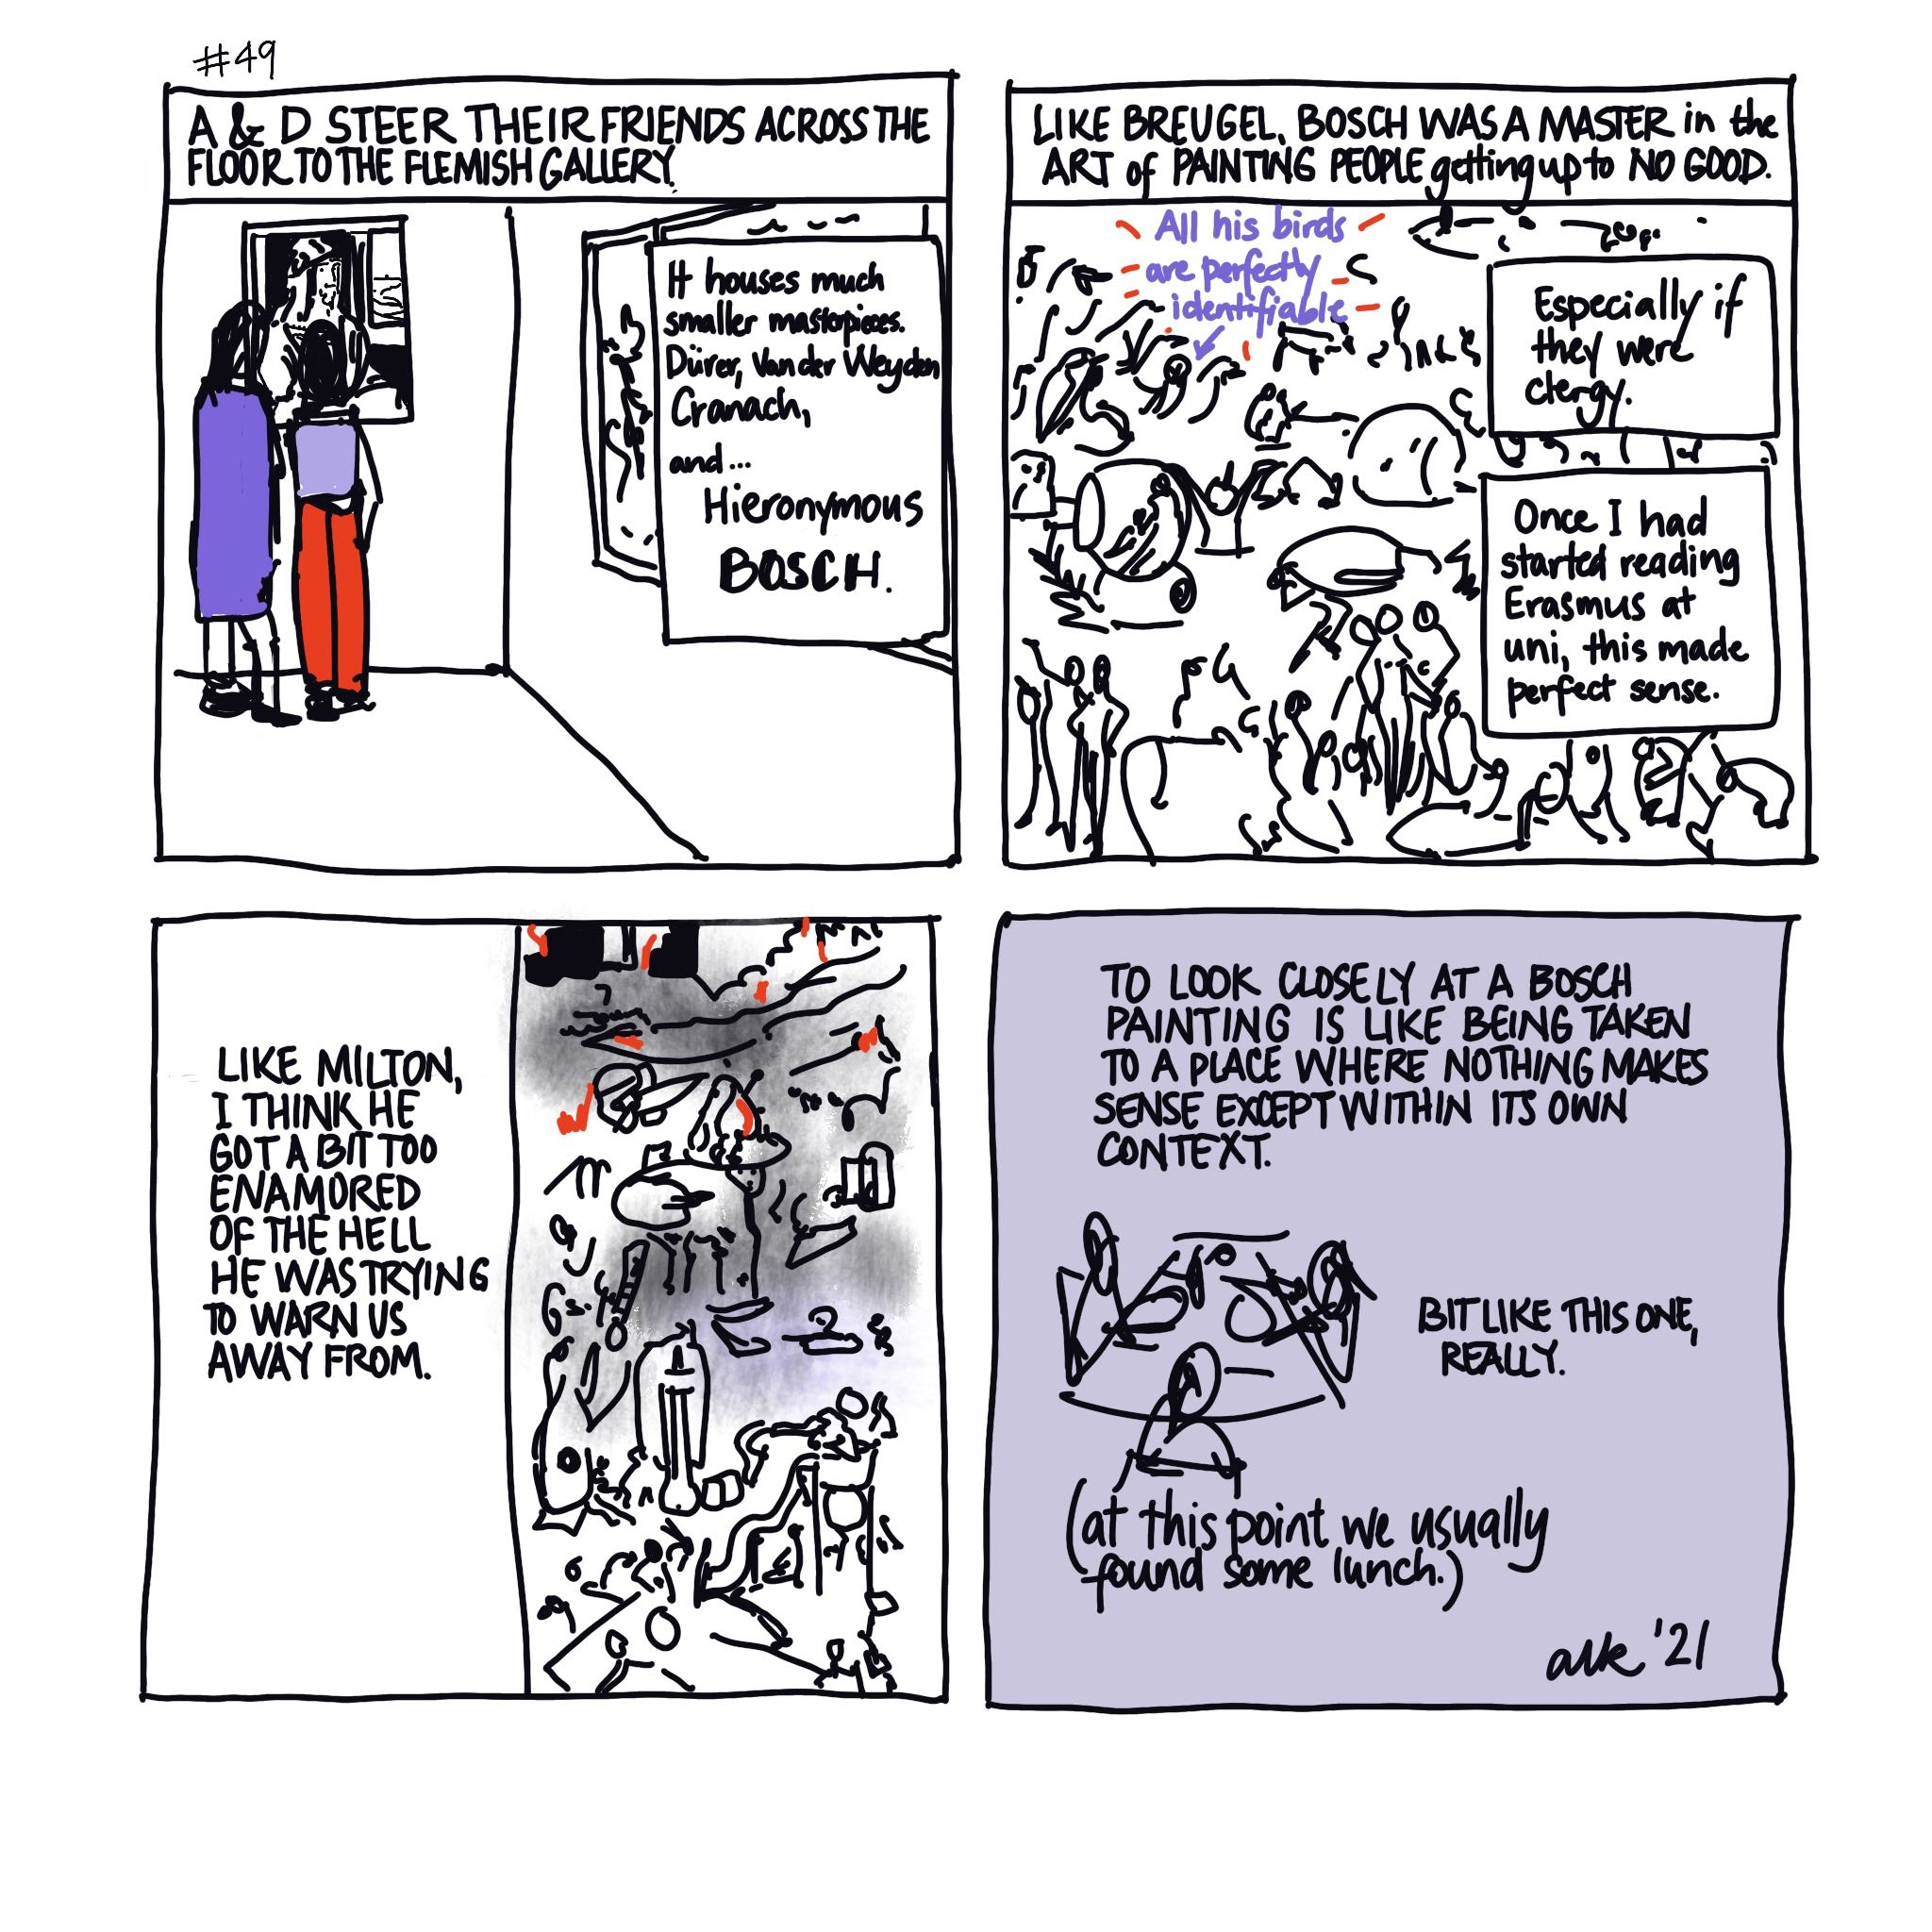 #49
A & D STEER THEIR FRIENDS ACROSS THE
FLOOR TO THE FLEMISH GALLERY.
It houses much
smaller masterpieces.
Dürer, Van der Weyden
Cranach,
and...
Hieronymous
BOSCH.
LIKE BREUGEL, BOSCH WAS A MASTER in the
ART of PAINTING PEOPLE getting up to NO GOOD.
All his birds
are perfectly
identifiable
Especially if
they were
clergy.
Once I had
started reading
Erasmus at
uni, this made
perfect sense.
LIKE MILTON,
I THINK HE
GOT A BIT TOO
ENAMORED
OF THE HELL
HE WAS TRYING
TO WARN US
AWAY FROM.
TO LOOK CLOSELY AT A BOSCH
PAINTING IS LIKE BEING TAKEN
TO A PLACE WHERE NOTHING MAKES
SENSE EXCEPT WITHIN ITS OWN
CONTEXT.
BIT LIKE THIS ONE,
REALLY.
(at this point we usually
found some lunch.)
'21